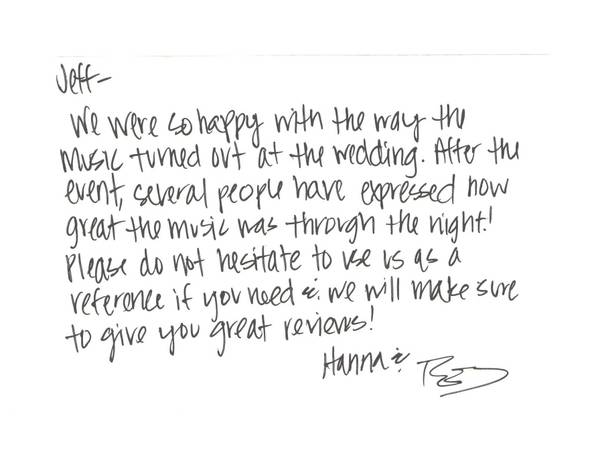 Jeff-
We were so happy with the way the
music turned out at the wedding. After the
event, several people have expressed how
great the music was through the night!
Please do not hesitate to use us as a
reference if you need & we will make sure
to give you great reviews!
Hanna &